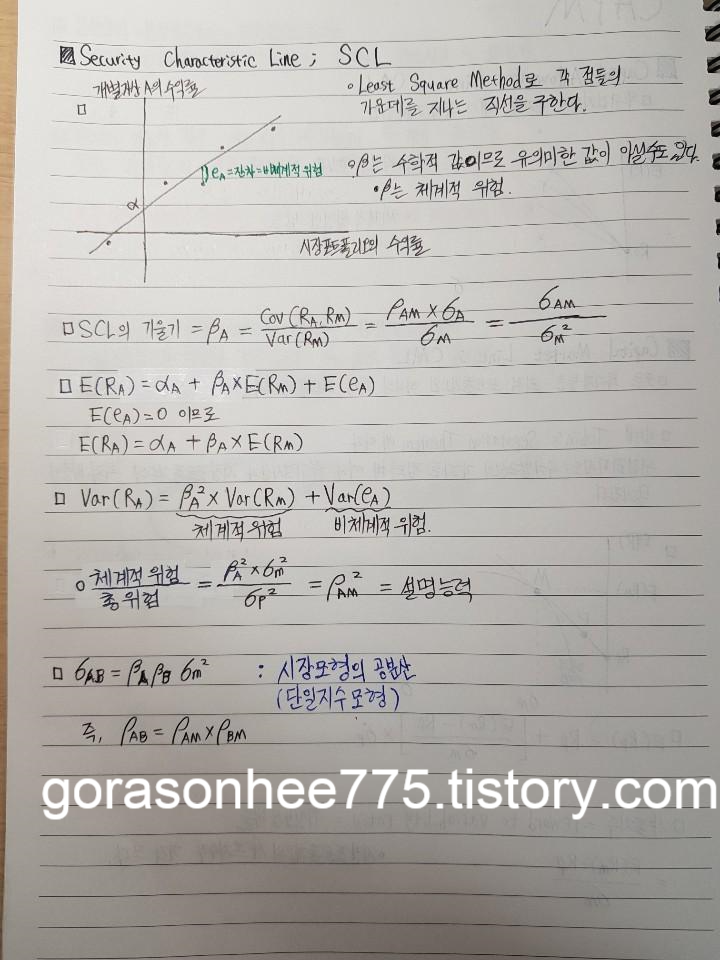 ▨ Security Characteristic Line ; SCL
개별자산 A의 수익률
□
eA = 잔차 = 비체계적 위험
α
시장포트폴리오의 수익률
o Least Square Method로 각 점들의
가운데를 지나는 직선을 구한다.
o β는 수학적 값이므로 유의미한 값이 아닐수도 있다.
• β는 체계적 위험.
□ SCL의 기울기 = βA = Cov(RA, RM) / Var(RM) = ρAM × σA / σM = σAM / σM²
□ E(RA) = αA + βA × E(RM) + E(eA)
E(eA) = 0 이므로
E(RA) = αA + βA × E(RM)
□ Var(RA) = βA² × Var(RM) + Var(eA)
체계적 위험 비체계적 위험.
o 체계적 위험 / 총 위험 = βA² × σm² / σp² = ρAM² = 설명능력
□ σAB = βA βB σm² : 시장모형의 공분산
(단일지수 모형)
즉, ρAB = ρAM × ρBM
gorasonhee775.tistory.com